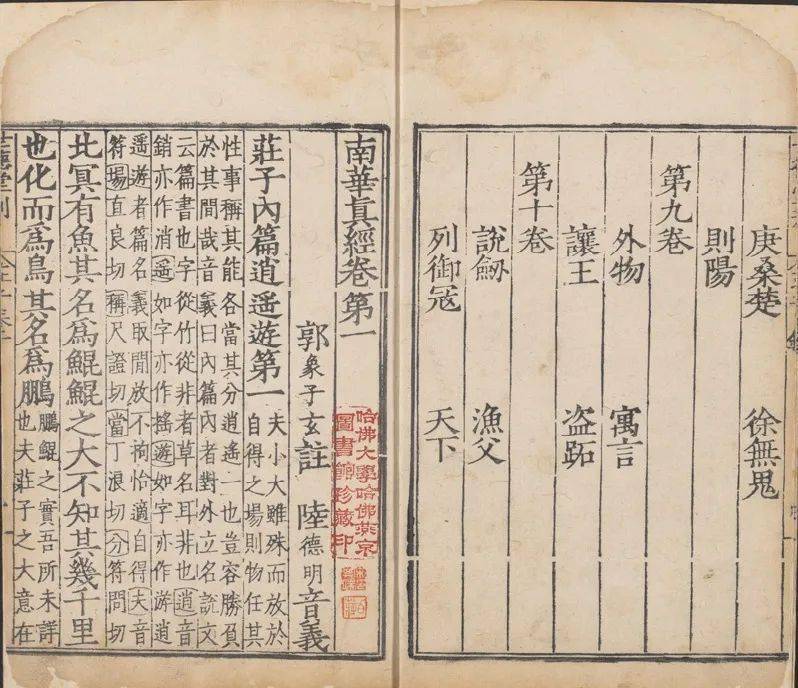 庚桑楚 徐無鬼
則陽
第九卷
外物 寓言
讓王 盗跖
第十卷
說劒 漁父
列御冦 天下
南華眞經卷第一
郭象子玄註 陸德明音義
哈佛大學哈佛燕京
圖書館珍藏印
莊子內篇逍遥遊第一 夫小大雖殊而放於自得之場則物任其
性事稱其能各當其分逍遥一也豈容勝負
於其間哉音義曰内篇内者對外立名說文
云篇書也字從竹從者草名耳非也逍音
銷亦作消遥如字亦作摇遊如字亦作游逍
遥遊者篇名義取閒放不拘怡適自得夫音
符場直良切稱尺證切當丁浪切分符問切
北冥有魚其名爲鯤鯤之大不知其幾千里
也化而爲鳥其名爲鵬 鵬鯤之實吾所未詳也夫莊子之大意在